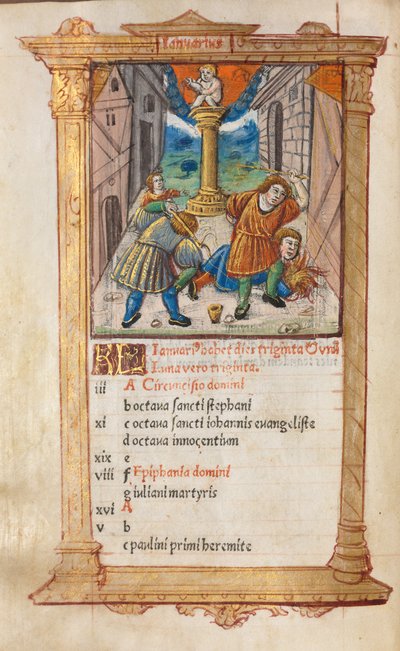 Ianuarius
KL Ianuariꝰ habet dies triginta Vnū
Luna vero triginta.
iii A Circuncisio domini
b octaua sancti stephani
xi c octaua sancti iohannis euangeliste
d octaua innocentium
xix e
viii f Epiphania domini
g iuliani martyris
xvi A
v b
c paulini primi heremite